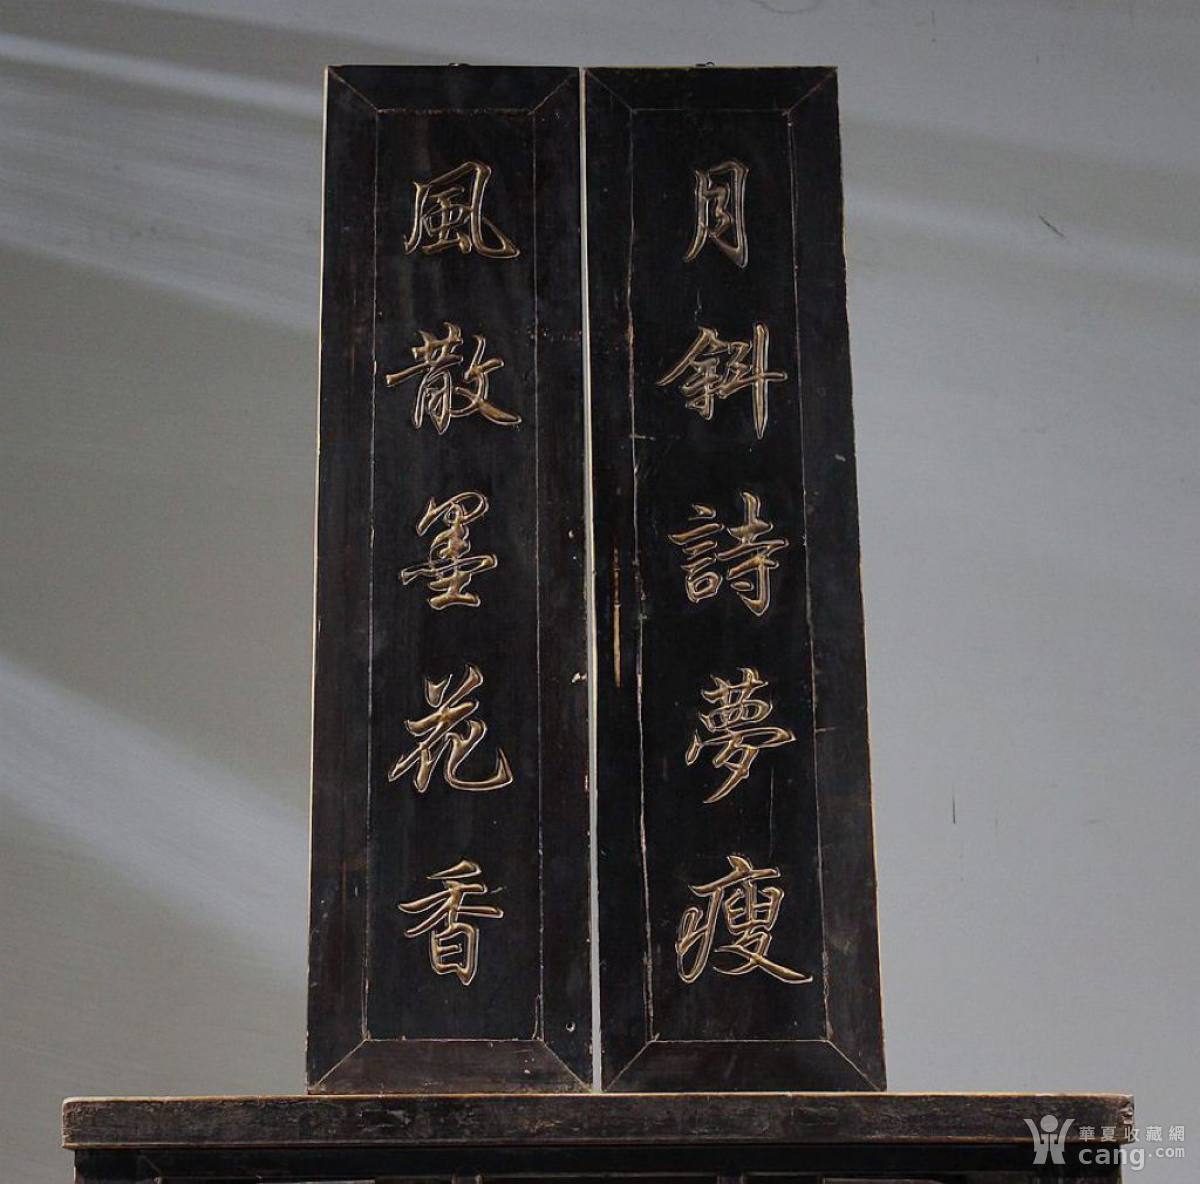 月斜詩夢瘦
風散墨花香
華夏收藏網
cang.com